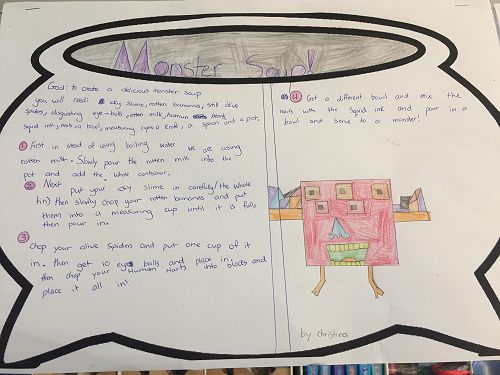 Monster Soup!
Goal: to create a delicious monster soup
you will need: icky slime, rotten bananas, still alive
spiders, disgusting eye-balls, rotten milk, human
squid ink, nails in bowl, measuring cups a knife, a spoon and a pot.
1 First in stead of using boiling water we are using
rotten milk. Slowly pour the rotten milk into the
pot and add the whole container.
2 Next put your icky slime in carefully (the whole
tin) then slowly chop your rotten bananas and put
them into a measuring cup until it is full,
then pour in.
3
Chop your alive spiders and put one cup of it
in. then get 10 eye balls and place in.
then chop your Human Harts into blocks and
place it all in!
4 Get a different bowl and mix the
nails with the squid ink and pour in a
bowl and serve to a monster!
by christina